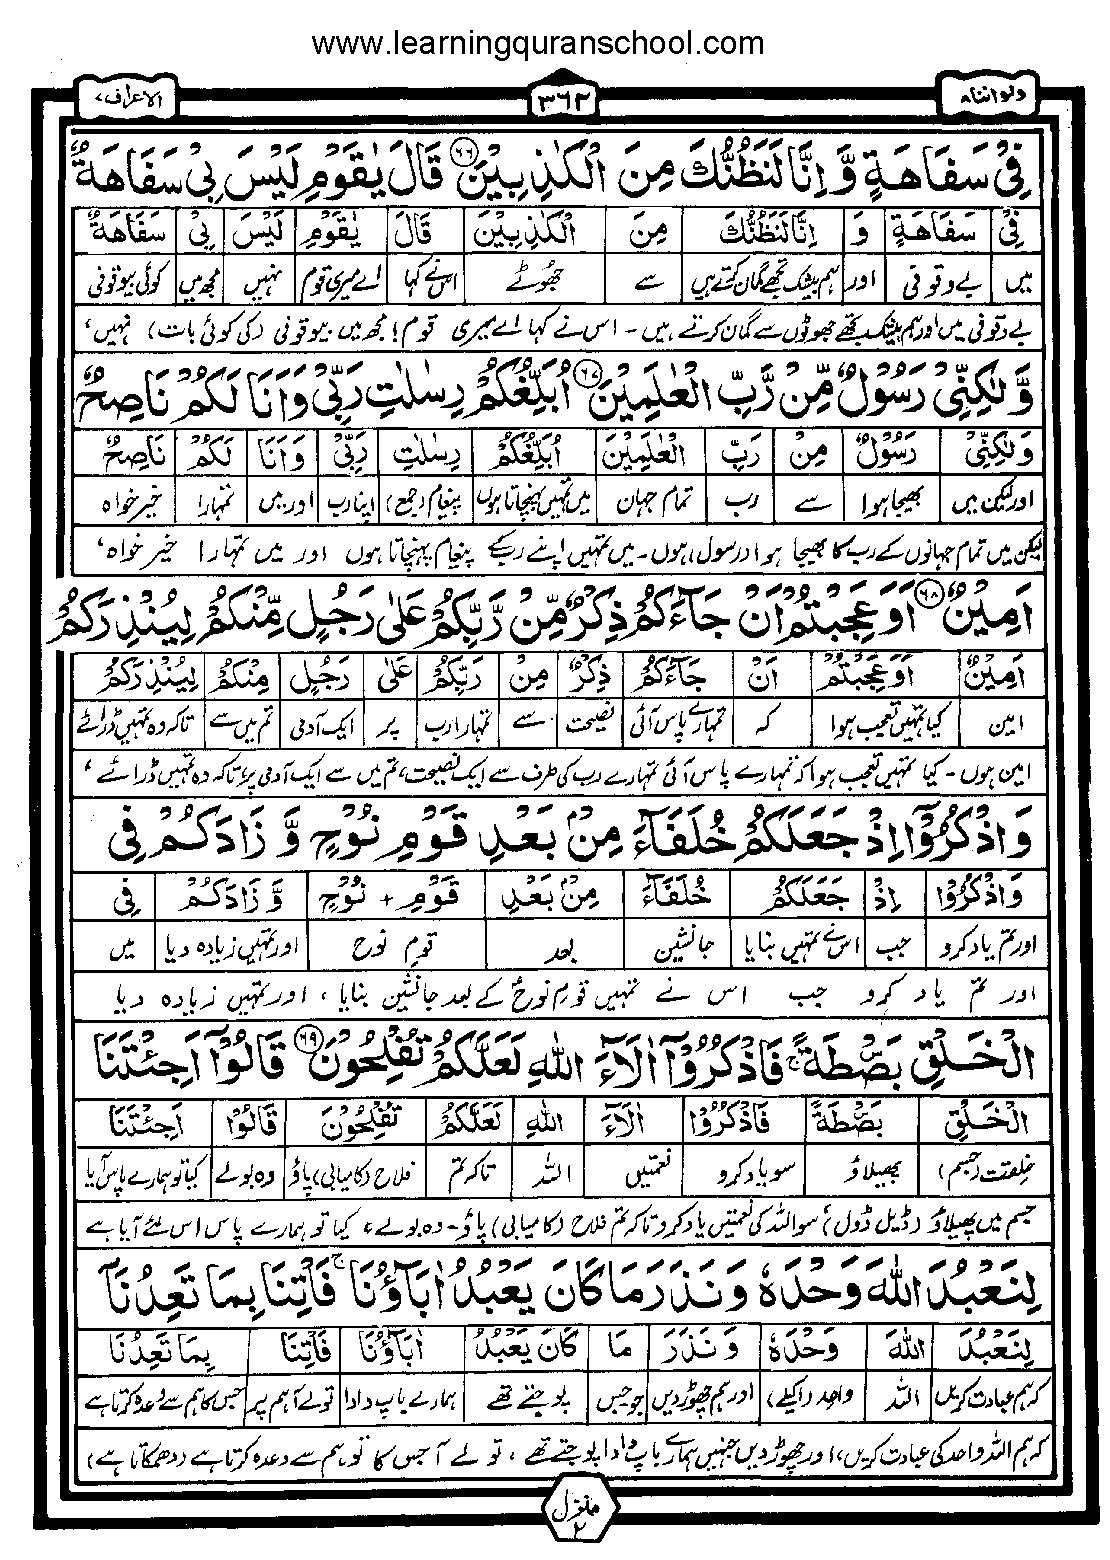 www.learningquranschool.com
ولواننا ۸
۳۶۲
الاعراف ۷
فِیْ سَفَاهَةٍ وَّ اِنَّا لَنَظُنُّكَ مِنَ الْكٰذِبِیْنَ ۶۶ قَالَ یٰقَوْمِ لَیْسَ بِیْ سَفَاهَةٌ
فِیْ سَفَاهَةٍ وَ اِنَّا لَنَظُنُّكَ مِنَ الْكٰذِبِیْنَ قَالَ یٰقَوْمِ لَیْسَ بِیْ سَفَاهَةٌ
میں بے وقوفی اور ہم بیشک تجھے گمان کرتے ہیں سے جھوٹے اس نے کہا اے میری قوم نہیں مجھ میں کوئی بیوقوفی
بے وقوفی میں اور ہم بیشک تجھے جھوٹوں سے گمان کرتے ہیں - اس نے کہا اے میری قوم! مجھ میں بیوقوفی (کی کوئی بات) نہیں،
وَّ لٰكِنِّیْ رَسُوْلٌ مِّنْ رَّبِّ الْعٰلَمِیْنَ ۶۷ اُبَلِّغُكُمْ رِسٰلٰتِ رَبِّیْ وَ اَنَا لَكُمْ نَاصِحٌ
وَ لٰكِنِّیْ رَسُوْلٌ مِنْ رَبِّ الْعٰلَمِیْنَ اُبَلِّغُكُمْ رِسٰلٰتِ رَبِّیْ وَ اَنَا لَكُمْ نَاصِحٌ
اور لیکن میں بھیجا ہوا سے رب تمام جہان میں تمہیں پہنچاتا ہوں پیغام (جمع) اپنا رب اور میں تمہارا خیر خواہ
لیکن میں تمام جہانوں کے رب کا بھیجا ہوا (رسول) ہوں - میں تمہیں اپنے رب کے پیغام پہنچاتا ہوں اور میں تمہارا خیر خواہ،
اَمِیْنٌ ۶۸ اَوَ عَجِبْتُمْ اَنْ جَآءَكُمْ ذِكْرٌ مِّنْ رَّبِّكُمْ عَلٰی رَجُلٍ مِّنْكُمْ لِیُنْذِرَكُمْ
اَمِیْنٌ اَوَ عَجِبْتُمْ اَنْ جَآءَكُمْ ذِكْرٌ مِنْ رَبِّكُمْ عَلٰی رَجُلٍ مِنْكُمْ لِیُنْذِرَكُمْ
امین کیا تمہیں تعجب ہوا کہ تمہارے پاس آئی نصیحت سے تمہارا رب پر ایک آدمی تم میں سے تاکہ وہ تمہیں ڈرائے
امین ہوں - کیا تمہیں تعجب ہوا کہ تمہارے پاس آئی تمہارے رب کی طرف سے ایک نصیحت، تم میں سے ایک آدمی پر تاکہ وہ تمہیں ڈرائے،
وَ اذْكُرُوْۤا اِذْ جَعَلَكُمْ خُلَفَآءَ مِنْۢ بَعْدِ قَوْمِ نُوْحٍ وَّ زَادَكُمْ فِی
وَ اذْكُرُوْا اِذْ جَعَلَكُمْ خُلَفَآءَ مِنْۢ بَعْدِ قَوْمِ + نُوْحٍ وَّ زَادَكُمْ فِی
اور تم یاد کرو جب اس نے تمہیں بنایا جانشین بعد قوم نوح اور تمہیں زیادہ دیا میں
اور تم یاد کرو جب اس نے تمہیں قوم نوحؑ کے بعد جانشین بنایا، اور تمہیں زیادہ دیا
الْخَلْقِ بَصْۜطَةً ۚ فَاذْكُرُوْۤا اٰلَآءَ اللّٰهِ لَعَلَّكُمْ تُفْلِحُوْنَ ۶۹ قَالُوْۤا اَجِئْتَنَا
الْخَلْقِ بَصْۜطَةً فَاذْكُرُوْا اٰلَآءَ اللّٰهِ لَعَلَّكُمْ تُفْلِحُوْنَ قَالُوْا اَجِئْتَنَا
خلقت (جسم) پھیلاؤ سو یاد کرو نعمتیں اللہ تاکہ تم فلاح (کامیابی) پاؤ وہ بولے کیا تو ہمارے پاس آیا
جسم میں پھیلاؤ (ڈیل ڈول) سو اللہ کی نعمتیں یاد کرو تاکہ تم فلاح (کامیابی) پاؤ - وہ بولے، کیا تو ہمارے پاس اس لئے آیا ہے
لِنَعْبُدَ اللّٰهَ وَحْدَهٗ وَ نَذَرَ مَا كَانَ یَعْبُدُ اٰبَآؤُنَا ۚ فَاْتِنَا بِمَا تَعِدُنَاۤ
لِنَعْبُدَ اللّٰهَ وَحْدَهٗ وَ نَذَرَ مَا كَانَ یَعْبُدُ اٰبَآؤُنَا فَاْتِنَا بِمَا تَعِدُنَا
کہ ہم عبادت کریں اللہ واحد (اکیلے) اور ہم چھوڑ دیں جو جس پوجتے تھے ہمارے باپ دادا تو لے آ ہم پر جس کا ہم سے وعدہ کرتا ہے
کہ ہم اللہ واحد کی عبادت کریں، اور چھوڑ دیں جنہیں ہمارے باپ دادا پوجتے تھے، تو لے آ جس کا تو ہم سے وعدہ کرتا ہے (دھمکاتا ہے)
منزل ۲